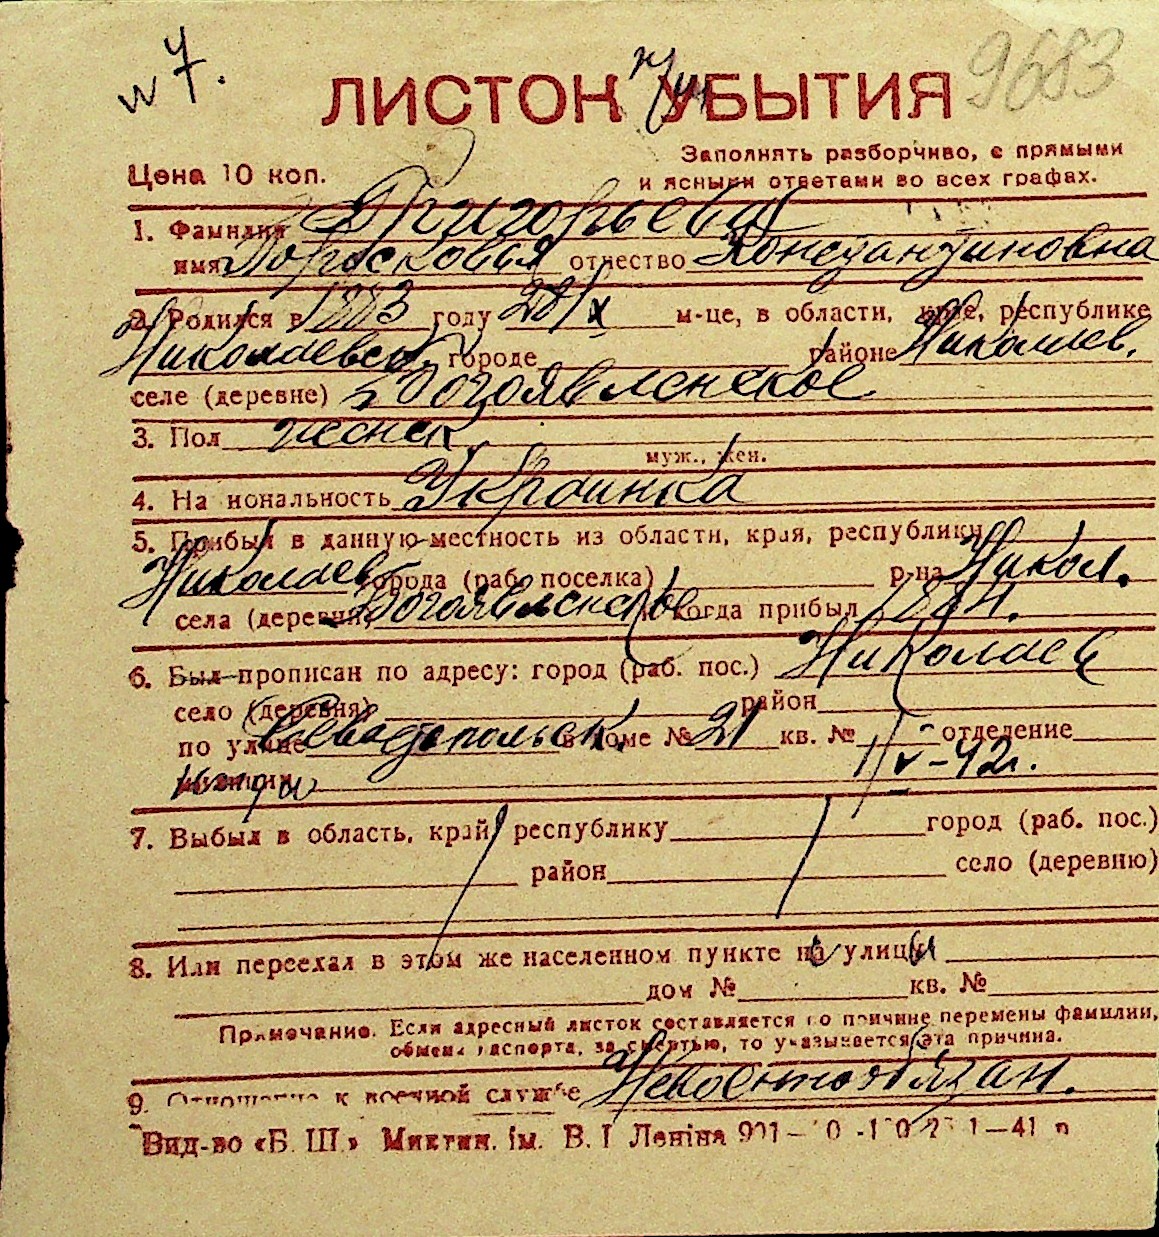 № 7.
9683
ЛИСТОК УБЫТИЯ
Цена 10 коп.
Заполнять разборчиво, с прямыми
и ясными ответами во всех графах.
1. Фамилия Григорьева
имя Порасковья отчество Константиновна
2. Родился в 1883 году 28/X м-це, в области, крае, республике
Николаевск. городе районе Николаев.
селе (деревне) Богоявленское
3. Пол женск.
муж., жен.
4. Национальность Украинка
5. Прибыл в данную местность из области, края, республики
Николаев. города (раб. поселка) р-на Никол.
села (деревни) Богоявленское когда прибыл
6. Был прописан по адресу: город (раб. пос.) Николаев
село (деревня) район
по улице Севастопольск. в доме № 21 кв. № отделение
V-42г.
7. Выбыл в область, край, республику город (раб. пос.)
район село (деревню)
8. Или переехал в этом же населенном пункте на улицу
дом № кв. №
Примечание. Если адресный листок составляется по причине перемены фамилии,
обмена паспорта, за смертью, то указывается эта причина.
9. Отношение к военной службе Невоеннообязан.
Вид-во «Б. Ш.» Миктин. ім. В. І Леніна